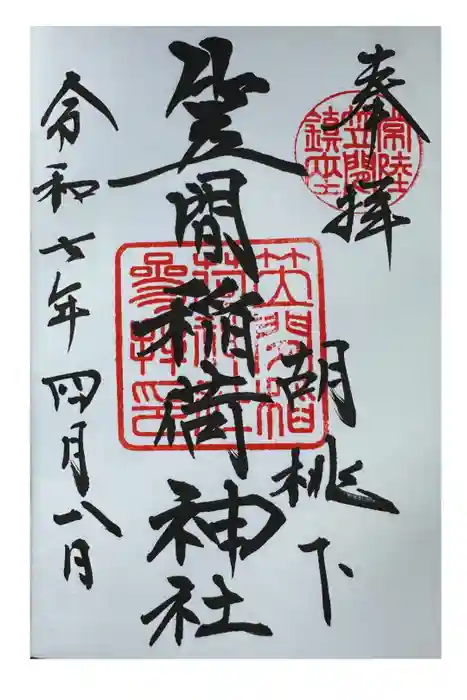 奉拝
常陸
笠間
鎮座
胡桃下
笠間稲荷神社
笠間稲
參拝印
令和七年四月八日